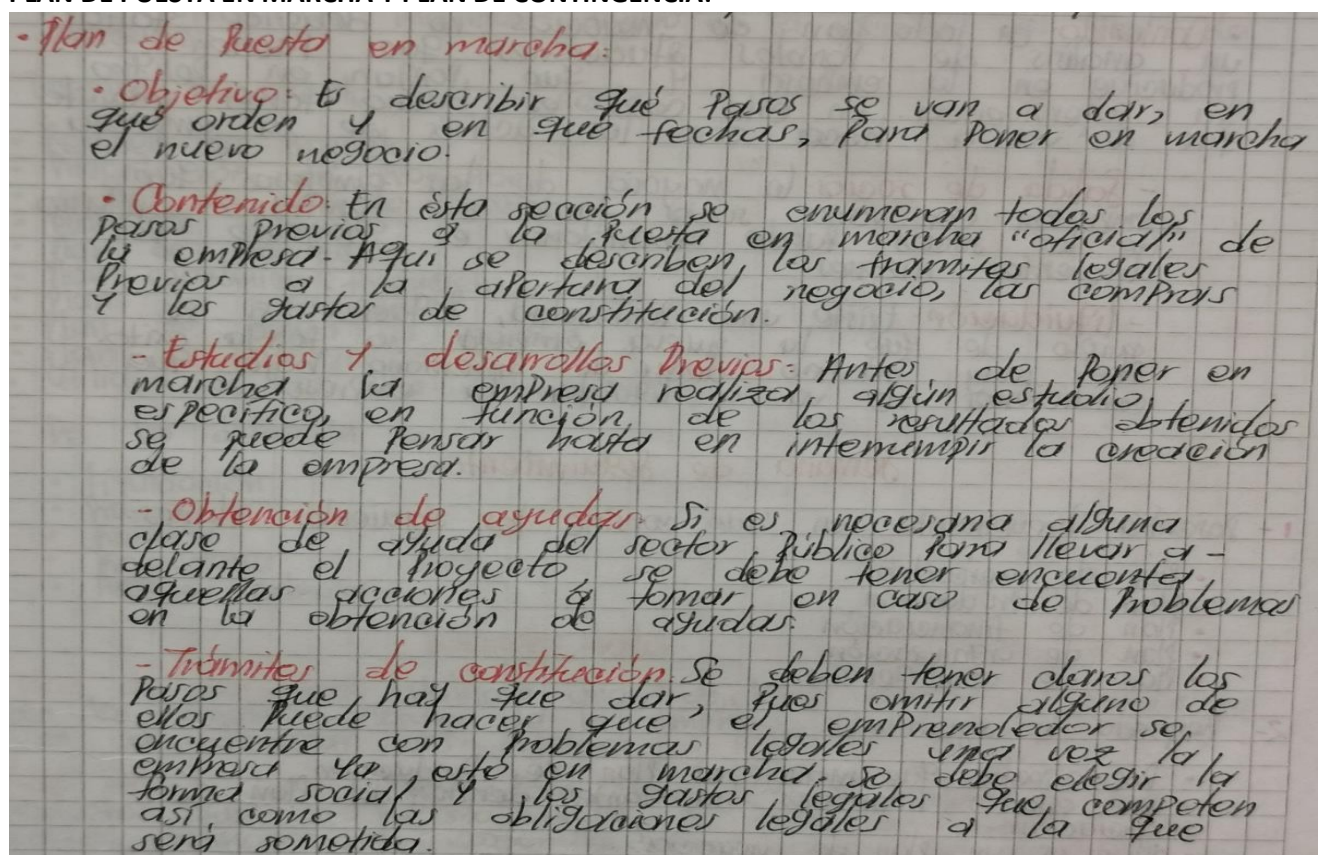 PLAN DE PUESTA EN MARCHA Y PLAN DE CONTINGENCIA:
• Plan de Puesta en marcha:
• Objetivo: Es describir qué Pasos se van a dar, en
qué orden y en que fechas, Para Poner en marcha
el nuevo negocio.
• Contenido: En ésta sección se enumeran todos los
pasos previos a la Puesta en marcha "oficial" de
la empresa. Aquí se describen, los tramites legales
Previos a la apertura del negocio, las compras
y los gastos de constitución.
- Estudios y desarrollos Previos: Antes de Poner en
marcha la empresa realiza, algún estudio
especifico, en función, de los resultados obtenidos
se puede Pensar hasta en interrumpir la creación
de la empresa.
- Obtención de ayudas. Si es necesaria alguna
clase de ayuda del sector Público Para llevar a-
delante el Proyecto, se debe tener encuenta,
aquellas acciones a tomar en caso de Problemas
en la obtención de ayudas.
- Trámites de constitución. Se deben tener claros los
Pasos que hay que dar, Pues omitir alguno de
ellos Puede hacer que el emprendedor se
encuentre con Problemas legales una vez la
empresa ya esté en marcha. se debe elegir la
forma social y los gastos legales que competen
así como las obligaciones legales a la que
será sometida.